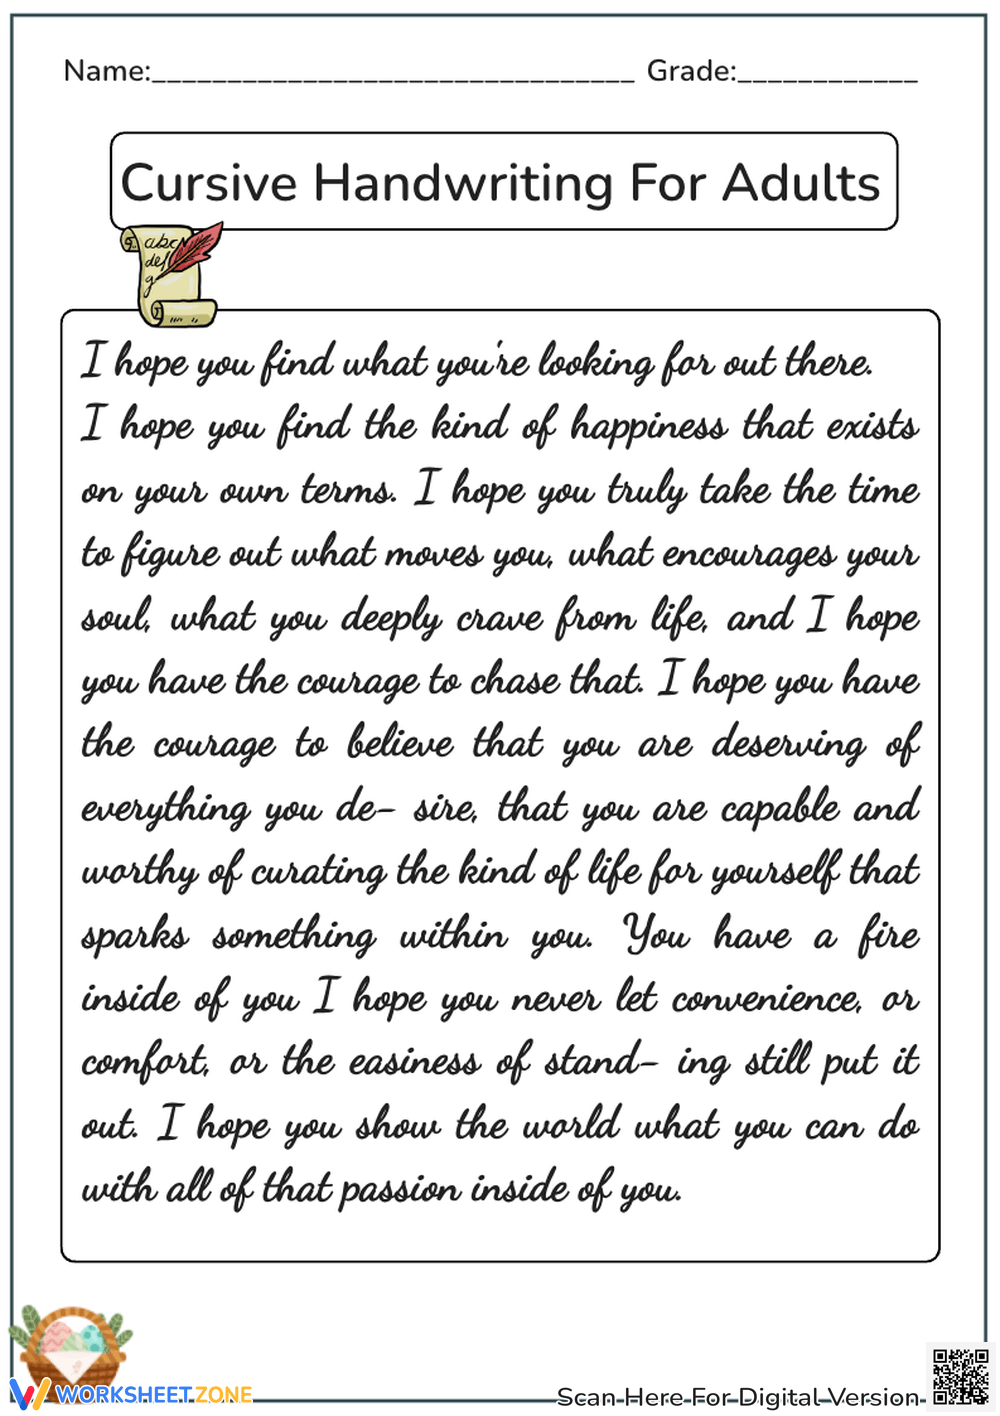 Name:________________________________ Grade:____________
Cursive Handwriting For Adults
abc
def
g
I hope you find what you're looking for out there.
I hope you find the kind of happiness that exists
on your own terms. I hope you truly take the time
to figure out what moves you, what encourages your
soul, what you deeply crave from life, and I hope
you have the courage to chase that. I hope you have
the courage to believe that you are deserving of
everything you de- sire, that you are capable and
worthy of curating the kind of life for yourself that
sparks something within you. You have a fire
inside of you I hope you never let convenience, or
comfort, or the easiness of stand- ing still put it
out. I hope you show the world what you can do
with all of that passion inside of you.
WORKSHEETZONE
Scan Here For Digital Version